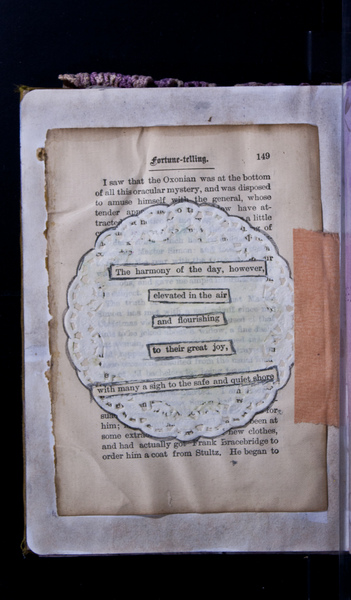 Fortune-telling. 149
I saw that the Oxonian was at the bottom
of all this oracular mystery, and was disposed
to amuse himself with the general, whose
tender have at-
a little
of
The harmony of the day, however,
elevated in the air
and flourishing
to their great joy,
with many a sigh to the safe and quiet shore
him; been at
some new clothes,
and had actually got Frank Bracebridge to
order him a coat from Stultz. He began to